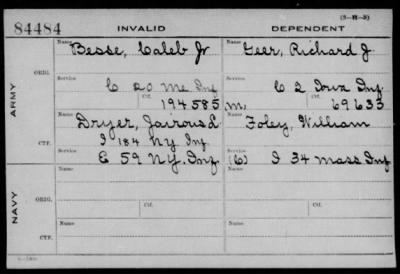 (3-H-3)
84484 INVALID DEPENDENT
Name Besse, Caleb Jr Name Geer, Richard J
ORIG.
Service C 20 Me Inf Service C 2 Iowa Inf
Ctf. 194585 Ctf. m. 69633
ARMY
Name Dryer, Jairous L Name Foley, William
I 184 NY Inf
CTF.
Service E 59 N.Y. Inf Service (6) I 34 Mass Inf
Name Name
ORIG.
Service Ctf. Service Ctf.
NAVY
Name Name
CTF.
Service Service